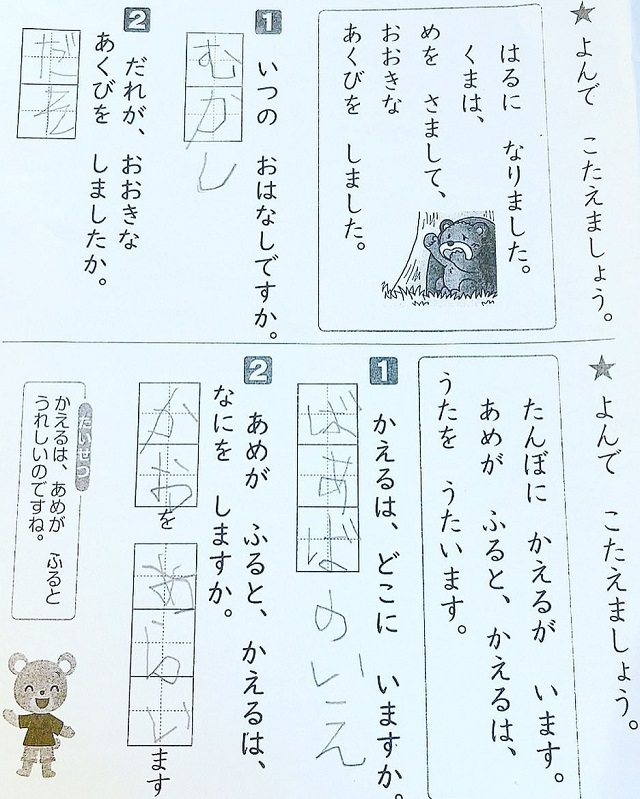 ★よんで こたえましょう。
はるに なりました。
くまは、
めを さまして、
おおきな
あくびを しました。
1 いつの おはなしですか。
むかし
2 だれが、おおきな
あくびを しましたか。
★よんで こたえましょう。
たんぼに かえるが います。
あめが ふると、かえるは、
うたを うたいます。
1 かえるは、どこに いますか。
ばあばのいえ
2 あめが ふると、かえるは、
なにを しますか。
かおを
あらいます
たいせつ
かえるは、あめが ふると
うれしいのですね。